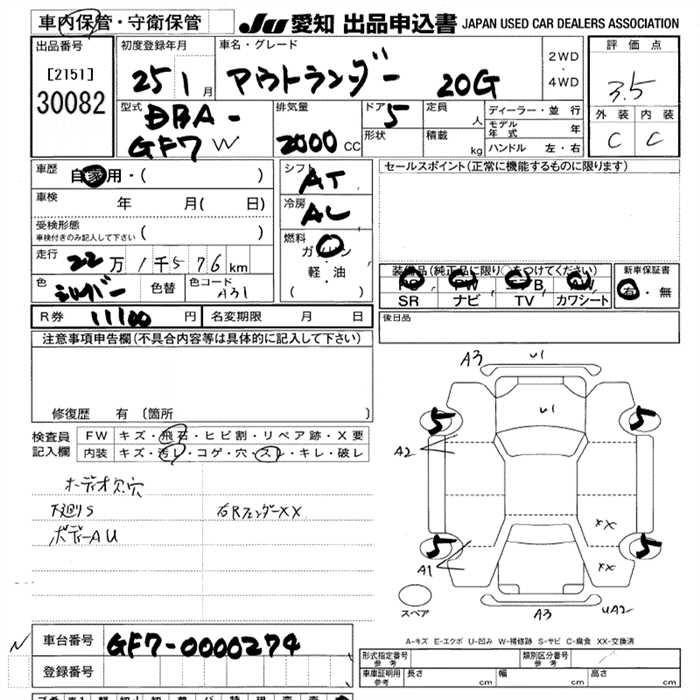 車内保管・守衛保管
JU 愛知 出品申込書 JAPAN USED CAR DEALERS ASSOCIATION
出品番号
[2151]
30082
初度登録年月
25 1月
車名・グレード
アウトランダー 20G
2WD・4WD
評価点
3.5
外装 内装
C C
型式
DBA-
GF7W
排気量
2000 CC
ドア 5
形状
定員 人
積載 kg
ディーラー・並行
モデル年式 年
ハンドル 左・右
車歴
自家用・( )
車検 年 月( 日)
受検形態
車検付きのみ記入して下さい ( )
走行 22万1千576km
色 シルバー 色替 色コード A31
シフト AT
冷房 AC
燃料
ガソリン
軽・油
( )
セールスポイント(正常に機能するものに限ります)
装備品(純正品に限り○をつけてください)
PS PW エアB AW
SR ナビ TV カワシート
新車保証書
有・無
後日品
R券 11100円 名変期限 月 日
注意事項申告欄(不具合内容等は具体的に記入して下さい)
修復歴 有 (箇所 )
検査員記入欄
FW キズ・飛石・ヒビ割・リペア跡・X要
内装 キズ・汚レ・コゲ・穴・スレ・キレ・破レ
オーディオ欠穴
下廻りS
右RフェンダーXX
ボディーAU
A3 U1
U1
5 5
A2
XX
5 5
A1 XX
スペア
A3 UA2
A-キズ E-エクボ U-凹み W-補修跡 S-サビ C-腐食 XX-交換済
車台番号 GF7-0000274
登録番号
形式指定番号 参考
類別区分番号 参考
車庫証明用 参考 長さ cm 幅 cm 高さ cm